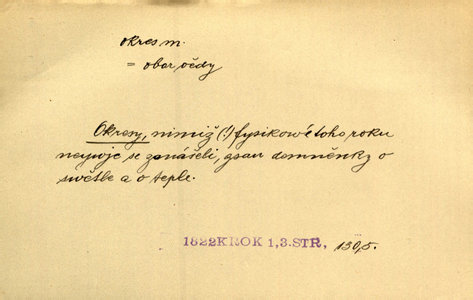 okres m.
= obor vědy
Okresy, nimiž (!) fysikowé toho roku
neywíc se zanášeli, gsau domněnky o
swětle a o teple.
1822 KROK 1,3. STR, 130,5.